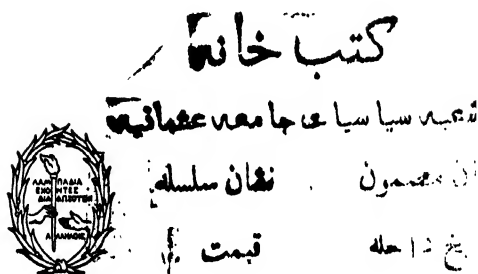 کتب خانہ
شعبہ سیاسیات جامعہ عثمانیہ
نشان مضمون نشان سلسلہ
تاریخ داخلہ قیمت
ΛΑΜΠΑΔΙΑ
ΕΧΟΝΤΕΣ
ΔΙΑΔΩΣΟΥΣΙΝ
ΑΛΛΗΛΟΙΣ